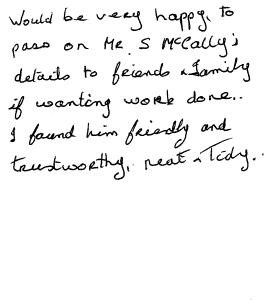 Would be very happy, to
pass on Mr. S McCally's
details to friends & family
if wanting work done..
I found him friendly and
trustworthy, neat & Tidy.